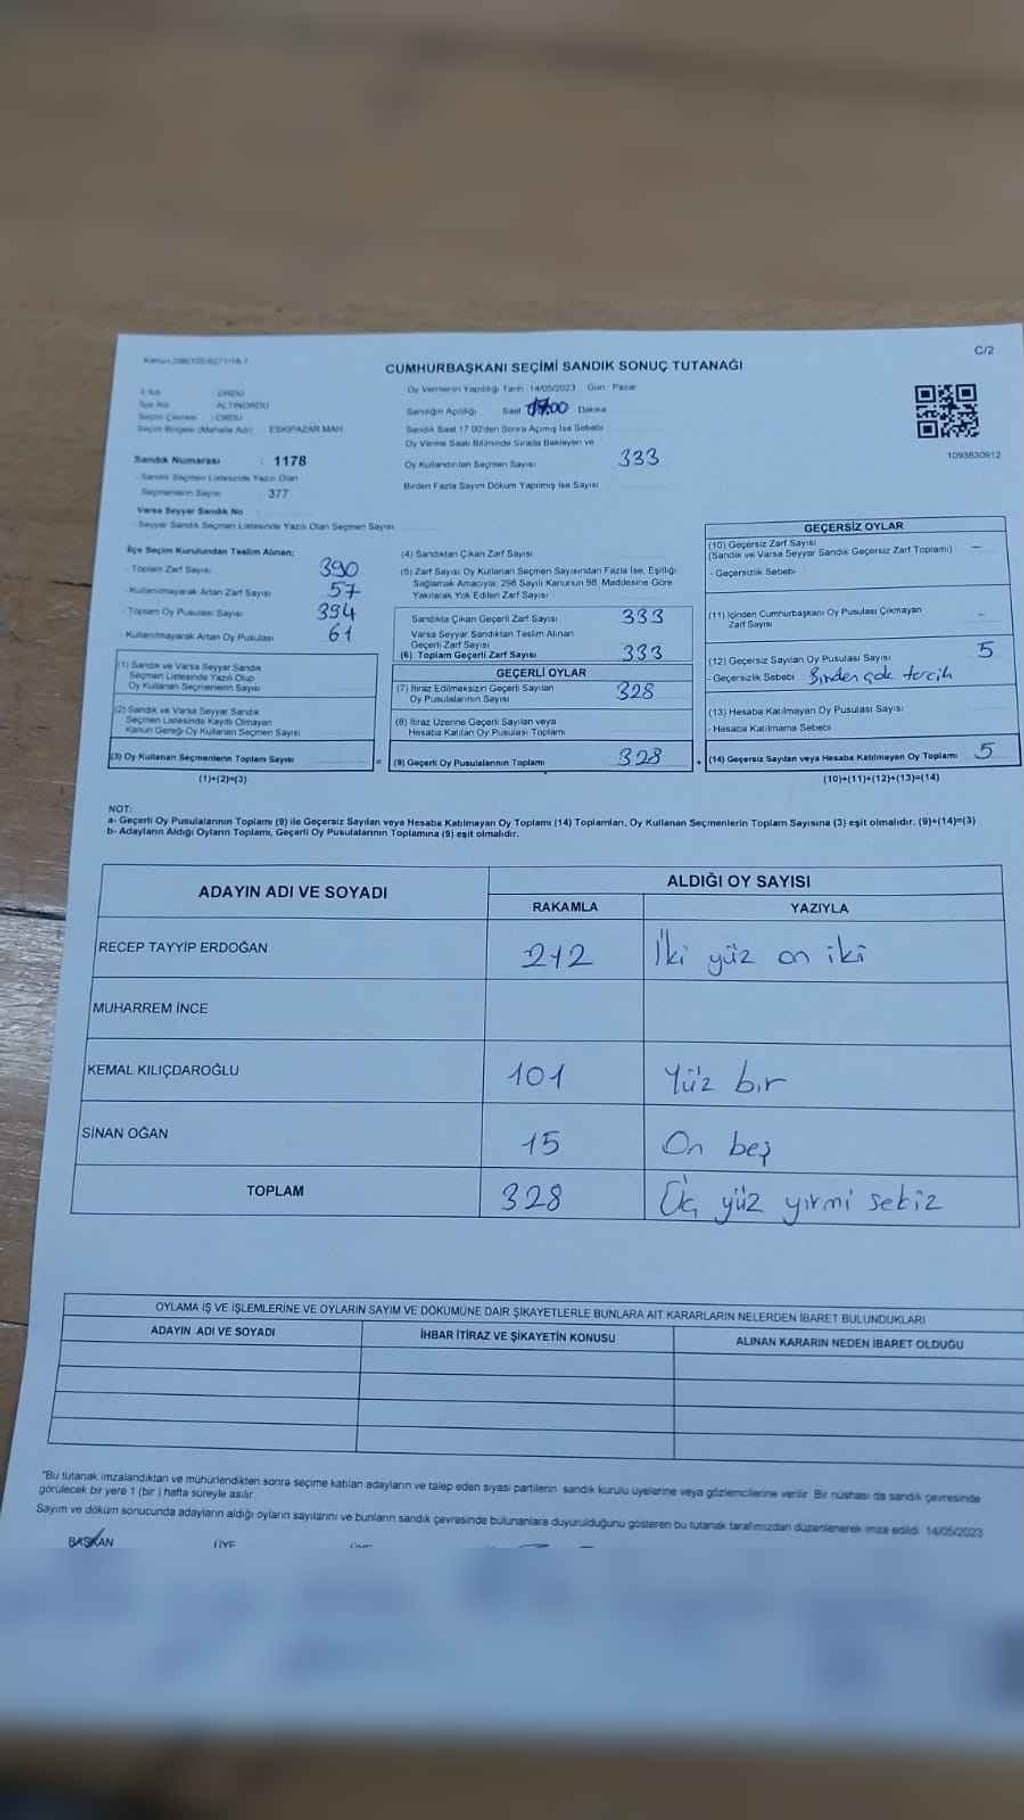 C/2
CUMHURBAŞKANI SEÇİMİ SANDIK SONUÇ TUTANAĞI
İl Adı : ORDU
İlçe Adı : ALTINORDU
Seçim Çevresi : ORDU
Seçim Bölgesi (Mahalle Adı) : ESKİPAZAR MAH.
Sandık Numarası : 1178
Sandık Seçmen Listesinde Yazılı Olan
Seçmenlerin Sayısı 377
Varsa Seyyar Sandık No
Seyyar Sandık Seçmen Listesinde Yazılı Olan Seçmen Sayısı
Oy Vermenin Yapıldığı Tarih : 14/05/2023 Gün : Pazar
Sandığın Açıldığı Saat 17.00 Dakika
Sandık Saat 17.00'den Sonra Açılmış İse Sebebi
Oy Verme Saati Bitiminde Sırada Bekleyen ve
Oy Kullandırılan Seçmen Sayısı 333
Birden Fazla Sayım Döküm Yapılmış İse Sayısı
1093830912
İlçe Seçim Kurulundan Teslim Alınan;
- Toplam Zarf Sayısı 390
- Kullanılmayarak Artan Zarf Sayısı 57
- Toplam Oy Pusulası Sayısı 394
- Kullanılmayarak Artan Oy Pusulası 61
(1) Sandık ve Varsa Seyyar Sandık
Seçmen Listesinde Yazılı Olup
Oy Kullanan Seçmenlerin Sayısı
(2) Sandık ve Varsa Seyyar Sandık
Seçmen Listesinde Kayıtlı Olmayan
Kanun Gereği Oy Kullanan Seçmen Sayısı
(3) Oy Kullanan Seçmenlerin Toplam Sayısı =
(1)+(2)=(3)
(4) Sandıktan Çıkan Zarf Sayısı
(5) Zarf Sayısı Oy Kullanan Seçmen Sayısından Fazla İse, Eşitliği
Sağlamak Amacıyla; 298 Sayılı Kanunun 98. Maddesine Göre
Yakılarak Yok Edilen Zarf Sayısı
Sandıkta Çıkan Geçerli Zarf Sayısı 333
Varsa Seyyar Sandıktan Teslim Alınan
Geçerli Zarf Sayısı
(6) Toplam Geçerli Zarf Sayısı 333
GEÇERLİ OYLAR
(7) İtiraz Edilmeksizin Geçerli Sayılan
Oy Pusulalarının Sayısı 328
(8) İtiraz Üzerine Geçerli Sayılan veya
Hesaba Katılan Oy Pusulası Toplamı
(9) Geçerli Oy Pusulalarının Toplamı 328 +
GEÇERSİZ OYLAR
(10) Geçersiz Zarf Sayısı
(Sandık ve Varsa Seyyar Sandık Geçersiz Zarf Toplamı) -
- Geçersizlik Sebebi
(11) İçinden Cumhurbaşkanı Oy Pusulası Çıkmayan
Zarf Sayısı -
(12) Geçersiz Sayılan Oy Pusulası Sayısı 5
- Geçersizlik Sebebi Birden çok tercih
(13) Hesaba Katılmayan Oy Pusulası Sayısı
- Hesaba Katılmama Sebebi
(14) Geçersiz Sayılan veya Hesaba Katılmayan Oy Toplamı 5
(10)+(11)+(12)+(13)=(14)
NOT:
a- Geçerli Oy Pusulalarının Toplamı (9) ile Geçersiz Sayılan veya Hesaba Katılmayan Oy Toplamı (14) Toplamları, Oy Kullanan Seçmenlerin Toplam Sayısına (3) eşit olmalıdır. (9)+(14)=(3)
b- Adayların Aldığı Oyların Toplamı, Geçerli Oy Pusulalarının Toplamına (9) eşit olmalıdır.
ADAYIN ADI VE SOYADI ALDIĞI OY SAYISI
RAKAMLA YAZIYLA
RECEP TAYYİP ERDOĞAN 212 İki yüz on iki
MUHARREM İNCE
KEMAL KILIÇDAROĞLU 101 Yüz bir
SİNAN OĞAN 15 On beş
TOPLAM 328 Üç yüz yirmi sekiz
OYLAMA İŞ VE İŞLEMLERİNE VE OYLARIN SAYIM VE DÖKÜMÜNE DAİR ŞİKAYETLERLE BUNLARA AİT KARARLARIN NELERDEN İBARET BULUNDUKLARI
ADAYIN ADI VE SOYADI İHBAR İTİRAZ VE ŞİKAYETİN KONUSU ALINAN KARARIN NEDEN İBARET OLDUĞU
"Bu tutanak imzalandıktan ve mühürlendikten sonra seçime katılan adayların ve talep eden siyasi partilerin sandık kurulu üyelerine veya gözlemcilerine verilir. Bir nüshası da sandık çevresinde
görülecek bir yere 1 (bir) hafta süreyle asılır.
Sayım ve döküm sonucunda adayların aldığı oyların sayılarını ve bunların sandık çevresinde bulunanlara duyurulduğunu gösteren bu tutanak tarafımızdan düzenlenerek imza edildi. 14/05/2023
BAŞKAN ÜYE